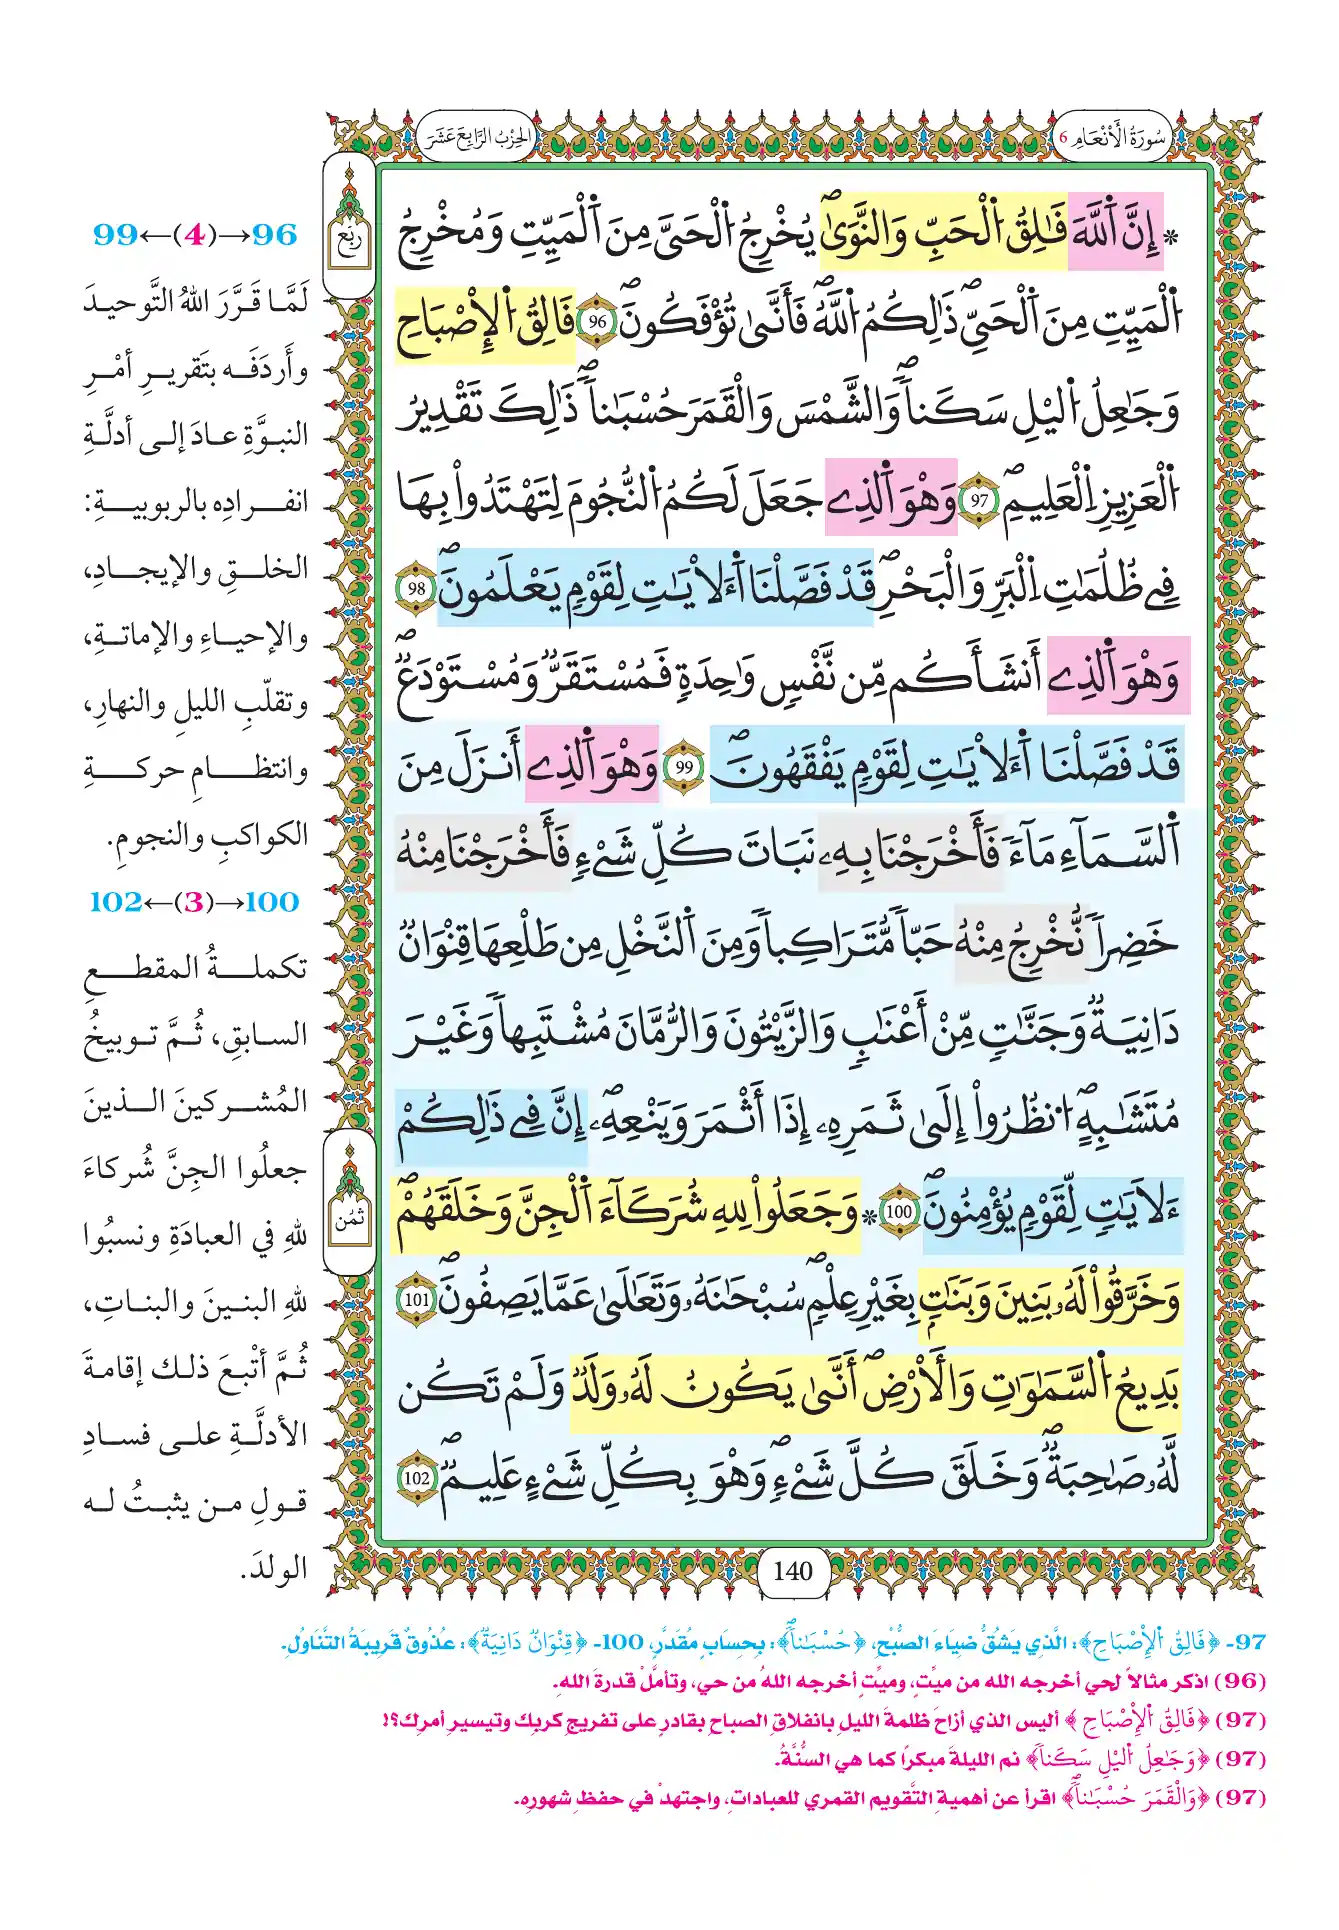 سُورَةُ الأَنْعَامِ 6
الحِزْبُ الرَّابِعَ عَشَرَ
رُبُع
* إِنَّ اَ۬للَّهَ فَٰلِقُ اُ۬لْحَبِّ وَالنَّو۪ىٰۖ يُخْرِجُ اُ۬لْحَيَّ مِنَ اَ۬لْمَيِّتِ وَمُخْرِجُ
اُ۬لْمَيِّتِ مِنَ اَ۬لْحَيِّۖ ذَٰلِكُمُ اُ۬للَّهُۖ فَأَنَّىٰ تُؤْفَكُونَۖ 96 فَالِقُ اُ۬لْإِصْبَاحِ
وَجَٰعِلُ اُ۬ليْلِ سَكَناٗۖ وَالشَّمْسَ وَالْقَمَرَ حُسْبَٰناٗۖ ذَٰلِكَ تَقْدِيرُ
اُ۬لْعَزِيزِ اِ۬لْعَلِيمِۖ 97 وَهْوَ اَ۬لذِے جَعَلَ لَكُمُ اُ۬لنُّجُومَ لِتَهْتَدُواْ بِهَا
فِے ظُلُمَٰتِ اِ۬لْبَرِّ وَالْبَحْرِۖ قَدْ فَصَّلْنَا اَ۬ءَلَايَٰتِ لِقَوْمٖ يَعْلَمُونَۖ 98
وَهْوَ اَ۬لذِے أَنشَأَكُم مِّن نَّفْسٖ وَٰحِدَةٖ فَمُسْتَقَرّٞ وَمُسْتَوْدَعٞۖ
قَدْ فَصَّلْنَا اَ۬ءَلَايَٰتِ لِقَوْمٖ يَفْقَهُونَۖ 99 وَهْوَ اَ۬لذِے أَنزَلَ مِنَ
اَ۬لسَّمَآءِ مَآءٗ فَأَخْرَجْنَا بِهِۦ نَبَاتَ كُلِّ شَےْءٖ فَأَخْرَجْنَا مِنْهُ
خَضِراٗ نُّخْرِجُ مِنْهُ حَبّاٗ مُّتَرَاكِباٗ وَمِنَ اَ۬لنَّخْلِ مِن طَلْعِهَا قِنْوَانٞ
دَانِيَةٞ وَجَنَّٰتٖ مِّنْ أَعْنَٰبٖ وَالزَّيْتُونَ وَالرُّمَّانَ مُشْتَبِهاٗ وَغَيْرَ
مُتَشَٰبِهٍۖ اِ۟نظُرُواْ إِلَىٰ ثَمَرِهِۦ إِذَا أَثْمَرَ وَيَنْعِهِۦۖ إِنَّ فِے ذَٰلِكُمْ
ءَلَايَٰتٖ لِّقَوْمٖ يُؤْمِنُونَۖ 100 * وَجَعَلُواْ لِلهِ شُرَكَآءَ اَ۬لْجِنَّ وَخَلَقَهُمْۖ
وَخَرَّقُواْ لَهُۥ بَنِينَ وَبَنَٰتِۢ بِغَيْرِ عِلْمٖۖ سُبْحَٰنَهُۥ وَتَعَٰلَىٰ عَمَّا يَصِفُونَۖ 101
بَدِيعُ اُ۬لسَّمَٰوَٰتِ وَالْأَرْضِۖ أَنَّىٰ يَكُونُ لَهُۥ وَلَدٞ وَلَمْ تَكُن
لَّهُۥ صَٰحِبَةٞۖ وَخَلَقَ كُلَّ شَےْءٖۖ وَهْوَ بِكُلِّ شَےْءٍ عَلِيمٞۖ 102
ثُمُن
96→(4)←99
لَمَّا قَرَّرَ اللهُ التَّوحيدَ
وأَردَفَه بتَقريرِ أمْرِ
النبوَّةِ عادَ إلى أدلَّةِ
انفرادِه بالربوبيةِ:
الخلقِ والإيجادِ،
والإحياءِ والإماتةِ،
وتقلّبِ الليلِ والنهارِ،
وانتظامِ حركةِ
الكواكبِ والنجومِ.
100→(3)←102
تكملةُ المقطعِ
السابقِ، ثُمَّ توبيخُ
المُشركينَ الذينَ
جعلُوا الجِنَّ شُركاءَ
للهِ في العبادَةِ ونسبُوا
للهِ البنينَ والبناتِ،
ثُمَّ أتْبعَ ذلك إقامةَ
الأدلَّةِ على فسادِ
قولِ من يثبتُ له
الولدَ.
140
97- ﴿فَالِقُ اُ۬لْإِصْبَاحِ﴾: الَّذِي يَشُقُّ ضِيَاءَ الصُّبْحِ، ﴿حُسْبَٰناٗۖ﴾: بِحِسَابٍ مُقَدَّرٍ، 100- ﴿قِنْوَانٞ دَانِيَةٞ﴾: عُذُوقٌ قَرِيبَةُ التَّنَاوُلِ.
(96) اذكر مثالاً لحي أخرجه الله من ميِّتٍ، وميِّتٍ أخرجه اللهُ من حي، وتأمَّلْ قدرةَ اللهِ.
(97) ﴿فَالِقُ اُ۬لْإِصْبَاحِ﴾ أليس الذي أزاحَ ظلمةَ الليلِ بانفلاقِ الصباحِ بقادرٍ على تفريجِ كربِك وتيسيرِ أمرِك؟!
(97) ﴿وَجَٰعِلُ اُ۬ليْلِ سَكَناٗ﴾ نم الليلةَ مبكرًا كما هي السُّنَّةُ.
(97) ﴿وَالْقَمَرَ حُسْبَٰناٗۖ﴾ اقرأ عن أهميةِ التَّقويم القمري للعباداتِ، واجتهدْ في حفظِ شهورِه.